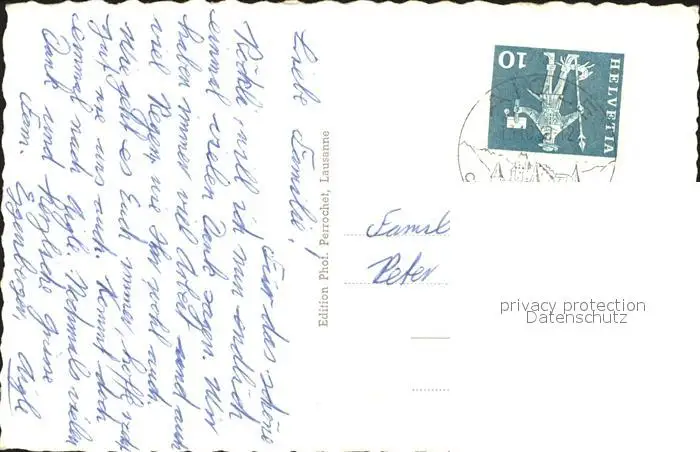 Liebe Familie!
Für das schöne
Röckli, will ich nun endlich
einmal vielen Dank sagen. Wir
haben immer viel Arbeit und auch
viel Regen, wie Ihr wohl auch.
Wie geht es Euch immer, hoffe
gut, wie uns auch. Kommt doch
einmal nach Aigle. Nochmals vielen
Dank und herzliche Grüsse
Fam. Eggenberger, Aigle
Edition Phot. Perrochet, Lausanne
HELVETIA
10
Famil
Peter
privacy protection
Datenschutz